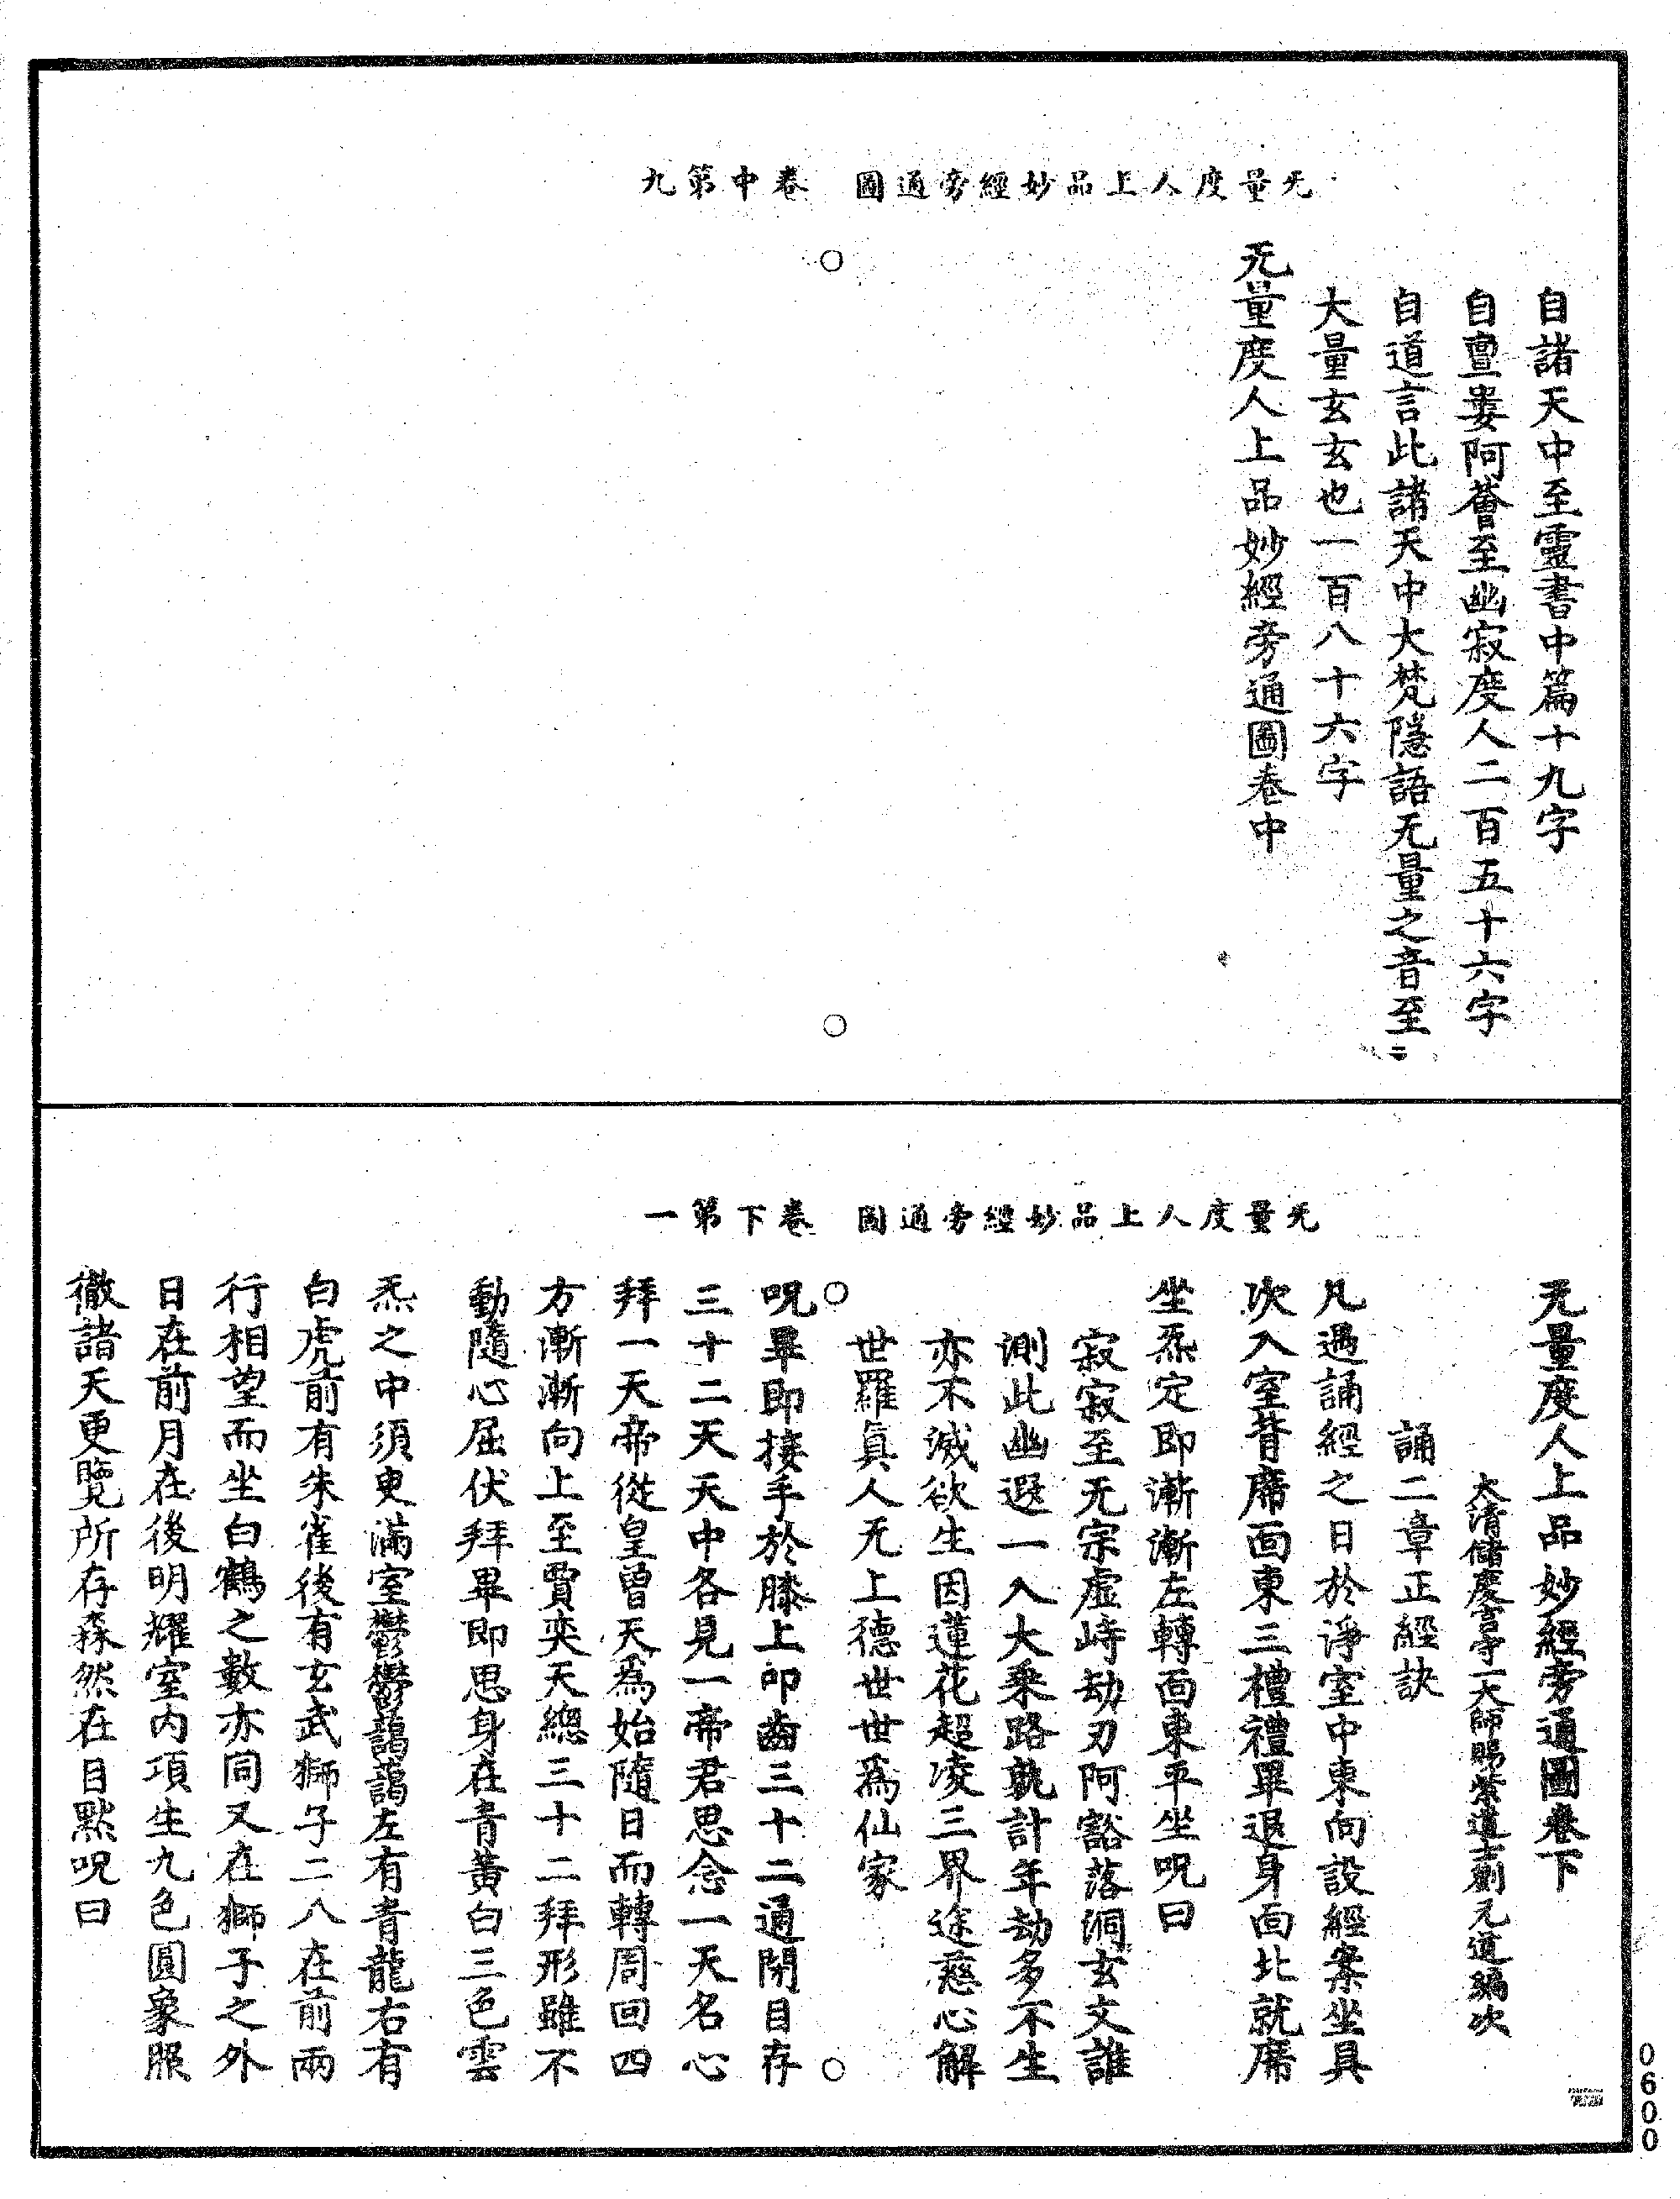 无量度人上品妙經旁通圖　卷中第九
自諸天中至靈書中篇十九字
自亶婁阿薈至幽寂度人二百五十六字
自道言此諸天中大梵隱語无量之音至
大量玄玄也一百八十六字
无量度人上品妙經旁通圖卷中
无量度人上品妙經旁通圖　卷下第一
无量度人上品妙經旁通圖卷下
大清儲慶宮守一大師賜紫道士劉元道編次
誦二章正經訣
凡遇誦經之日於淨室中東向設經案坐具
次入室背席面東三禮禮畢退身面北就席
坐炁定即漸漸左轉面東平坐呪曰
寂寂至无宗虛峙劫刃阿豁落洞玄文誰
測此幽遐一入大乘路孰計年劫多不生
亦不滅欲生因蓮花超凌三界途慈心解
世羅眞人无上德世世爲仙家
呪畢即接手於膝上叩齒三十二通閉目存
三十二天天中各見一帝君思念一天名心
拜一天帝從皇曾天爲始隨日而轉周回四
方漸漸向上至賈奕天總三十二拜形雖不
動隨心屈伏拜畢即思身在青黃白三色雲
炁之中須臾滿室鬱鬱藹藹左有青龍右有
白虎前有朱雀後有玄武獅子二八在前兩
行相望而坐白鶴之數亦同又在獅子之外
日在前月在後明耀室內項生九色圓象照
徹諸天更覽所存森然在目默呪曰
0600